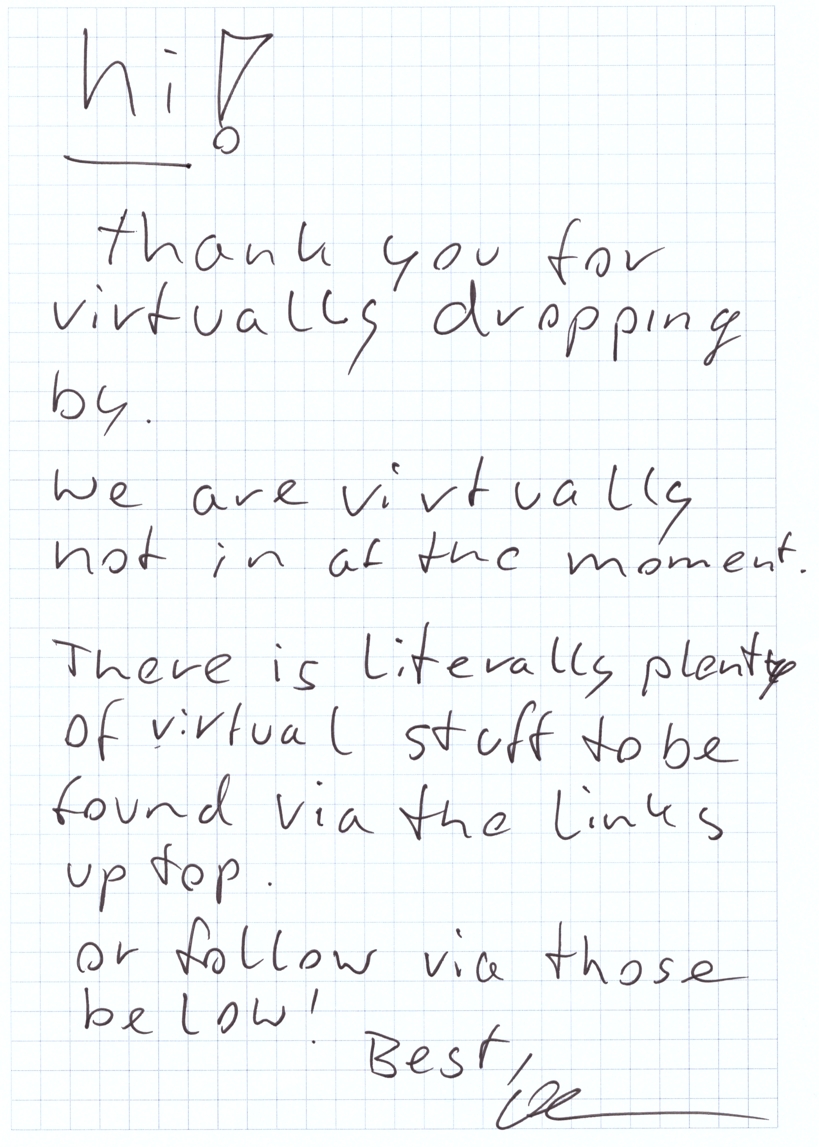 hi!
thank you for
virtually dropping
by.
we are virtually
not in at the moment.
There is literally plenty
of virtual stuff to be
found via the links
up top.
or follow via those
below!
Best,